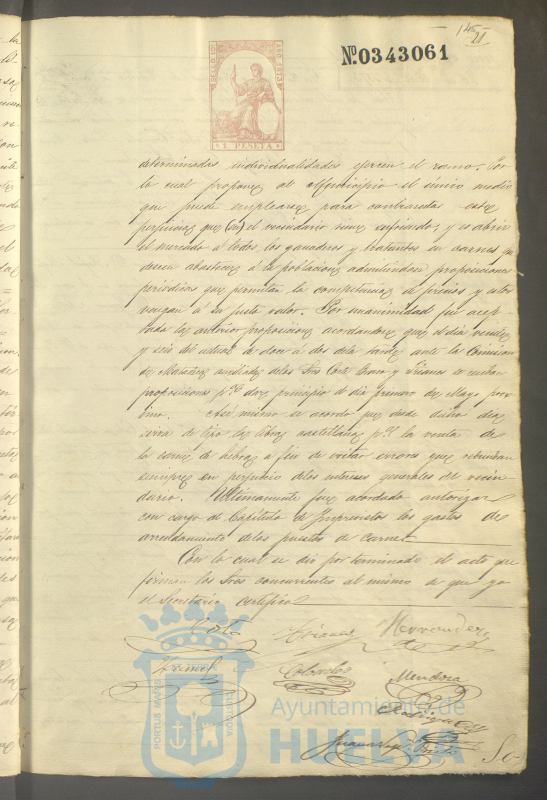 145
21
Nº 0343061
SELLO 11º
AÑO 1875
1 PESETA
determinadas individualidades ejercen el ramo. Por
lo cual propone al Municipio el único medio
que puede emplearse para contrarestar estos
perjuicios que el vecindario viene sufriendo, y es abrir
el mercado a todos los ganaderos y tratantes en carnes que
deseen abastecer a la poblacion admitiendose proposiciones
periodicas que permitan la competencia de precios y estos
vengan á su justo valor. Por unanimidad fue acep-
tada la anterior proposicion acordandose que el dia veinte
y seis del actual de doce á dos de la tarde ante la Comision
de Matadero auxiliada de los Sres y se
proposiciones pª dar principio el dia primero de Mayo proc
imo. Asi mismo se acordo que desde dicho dia
sirva de tipo la libra castellana pª la venta de
la carne de hebra a fin de evitar errores que redundan
siempre en perjuicio de los intereses generales del vecin
dario. Ultimamente fue acordado autorizar
con cargo al Capitulo de Imprevistos los gastos de
arrendamiento de los puestos de carne.
Con lo cual se dió por terminado el acto que
firman los Sres concurrentes al mismo de que yo
el Secretario certifico
Hernandez
Mendoza
PORTUS MARIS
CUSTODIA
Ayuntamiento de
HUELVA